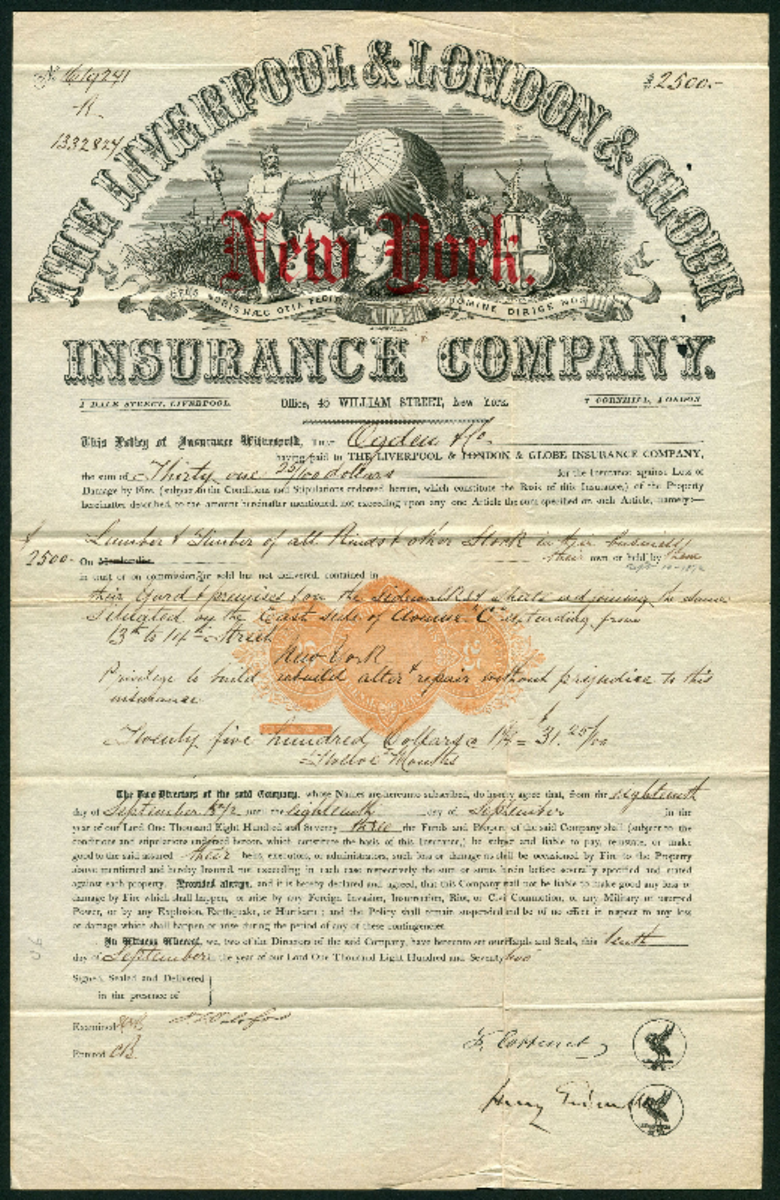 No. 1619241
R
1332827
$2500.-
THE LIVERPOOL & LONDON & GLOBE
New York.
DEUS NOBIS HÆC OTIA FECIT
DOMINE DIRIGE NOS
INSURANCE COMPANY.
1 DALE STREET, LIVERPOOL.
Office, 45 WILLIAM STREET, New York.
7 CORNHILL, LONDON
This Policy of Insurance Witnesseth, THAT Ogden & Co.
having paid to THE LIVERPOOL & LONDON & GLOBE INSURANCE COMPANY,
the sum of Thirty one 25/100 dollars for the Insurance against Loss or
Damage by Fire, (subject to the Conditions and Stipulations endorsed hereon, which constitute the Basis of this Insurance,) of the Property
hereinafter described, to the amount hereinafter mentioned, not exceeding upon any one Article the sum specified on such Article, namely:—
Lumber & Timber of all Kinds & other Stock in their business
$2500- On Merchandise their own or held by them
in trust or on commission, or sold but not delivered, contained in
their Yard & premises & on the sidewalks & adjoining the same
Situated on the East side of Avenue "C" extending from
13th to 14th Street
New York
Privilege to build, rebuild alter & repair without prejudice to this
insurance
Twenty five hundred Dollars @ 1¼ = $31.25/100
Twelve Months
The Two Directors of the said Company, whose Names are hereunto subscribed, do hereby agree that, from the eighteenth
day of September 1872 until the eighteenth day of September in the
year of our Lord One Thousand Eight Hundred and Seventy three the Funds and Property of the said Company shall (subject to the
conditions and stipulations endorsed hereon, which constitute the basis of this Insurance,) be subject and liable to pay, reinstate, or make
good to the said assured their heirs, executors, or administrators, such loss or damage as shall be occasioned by Fire to the Property
above mentioned and hereby Insured, not exceeding in each case respectively the sum or sums herein before severally specified and stated
against such property. Provided always, and it is hereby declared and agreed, that this Company shall not be liable to make good any loss or
damage by Fire which shall happen, or arise by any Foreign Invasion, Insurrection, Riot, or Civil Commotion, or any Military or usurped
Power, or by any Explosion, Earthquake, or Hurricane; and the Policy shall remain suspended and be of no effect in respect to any loss
or damage which shall happen or arise during the period of any of these contingencies.
In Witness Whereof, we, two of the Directors of the said Company, have hereunto set our Hands and Seals, this tenth
day of September in the year of our Lord One Thousand Eight Hundred and Seventy two
Signed, Sealed and Delivered
in the presence of
Examined
Entered CB
Henry